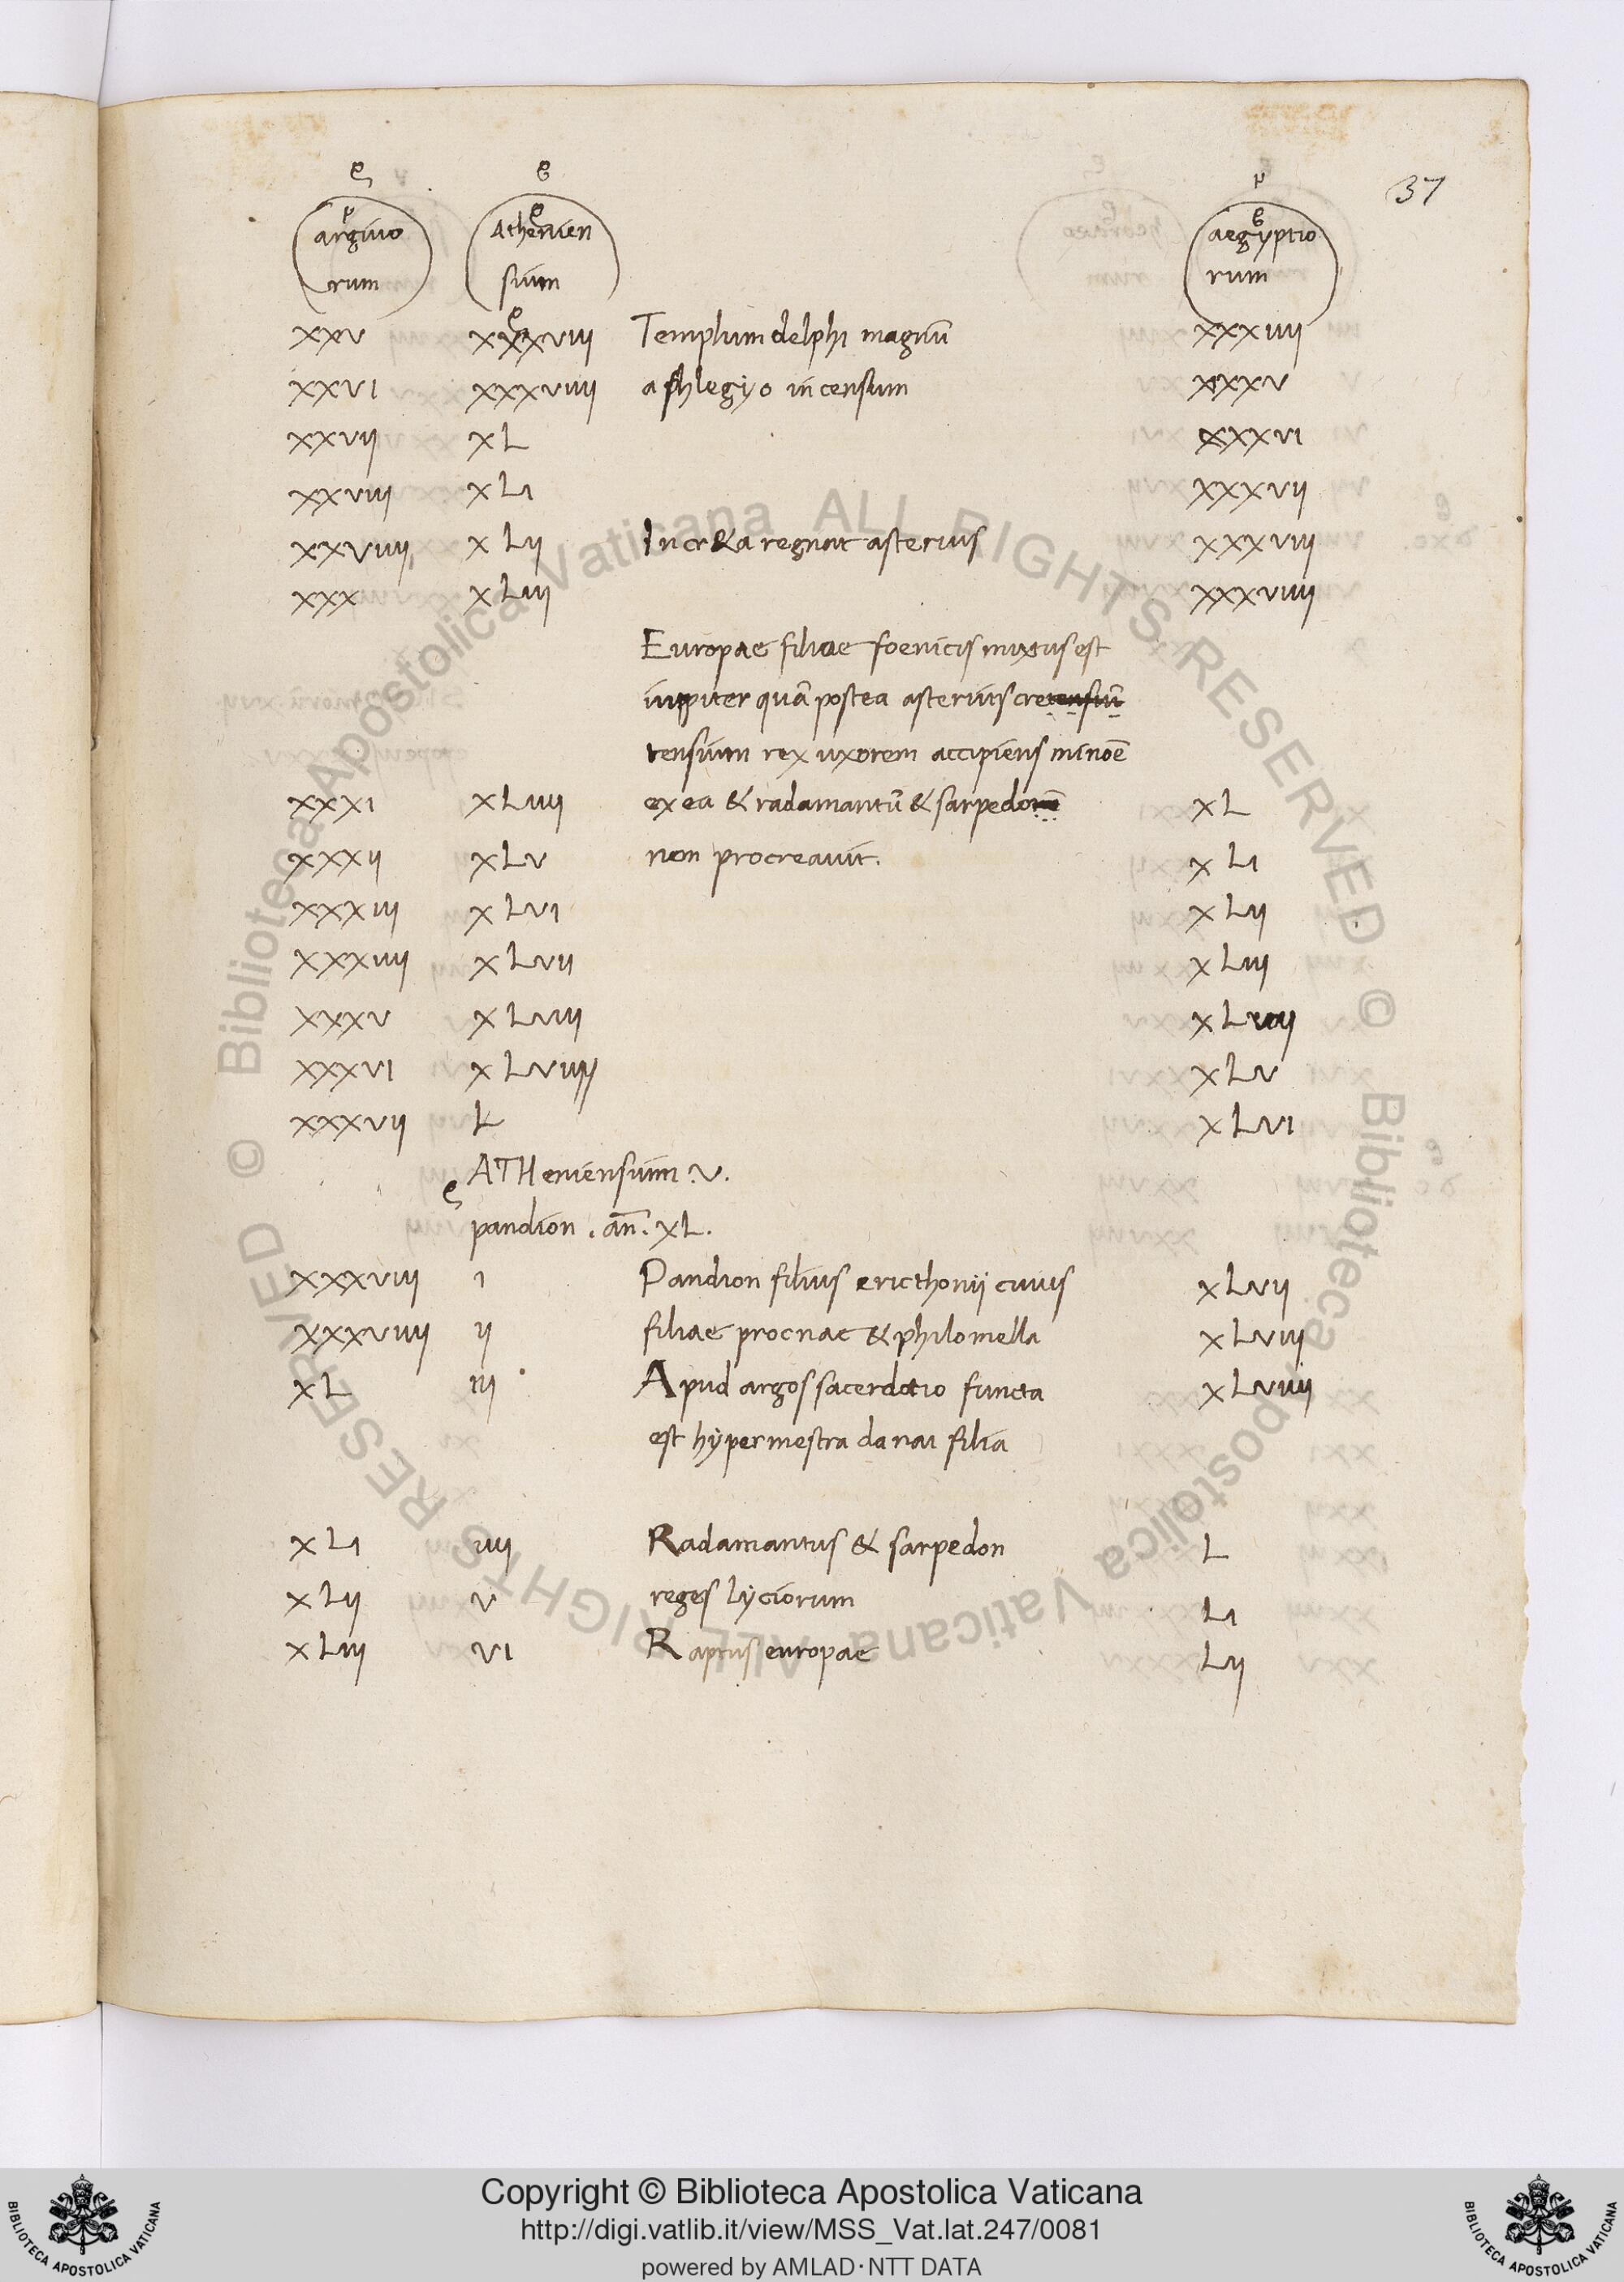 37
argiuo Athenien aegyptio
rum sium rum
xxv xxxviii Templum delphi magnū xxxiiii
xxvi xxxviiii a phlegyo incensum xxxv
xxvii xL xxxvi
xxviii xLi xxxvii
xxviiii xLii In cr&a regnat asterius xxxviii
xxx xLiii xxxviiii
Europae filiae foenicis mixtus est
iuppiter quā postea asterius cretensiū
tensium rex uxorem accipiens minoē
xxxi xLiiii ex ea & radamantū & sarpedonē xL
xxxii xLv nem procreavit. xLi
xxxiii xLvi xLii
xxxiiii xLvii xLiii
xxxv xLviii xLiiii
xxxvi xLviiii xLv
xxxvii L xLvi
ATHeniensium .v.
pandion . an̄. xL.
xxxviii i Pandion filius ericthonii cuius xLvii
xxxviiii ii filiae procnae & philomella xLviii
xL iii Apud argos sacerdotio functa xLviiii
est hypermestra danai filia
xLi iiii Radamantus & sarpedon L
xLii v reges lyciorum Li
xLiii vi Raptus europae Lii
© Biblioteca Apostolica Vaticana ALL RIGHTS RESERVED © Biblioteca Apostolica Vaticana ALL RIGHTS RESERVED
BIBLIOTECA APOSTOLICA VATICANA
Copyright © Biblioteca Apostolica Vaticana
http://digi.vatlib.it/view/MSS_Vat.lat.247/0081
powered by AMLAD·NTT DATA
BIBLIOTECA APOSTOLICA VATICANA